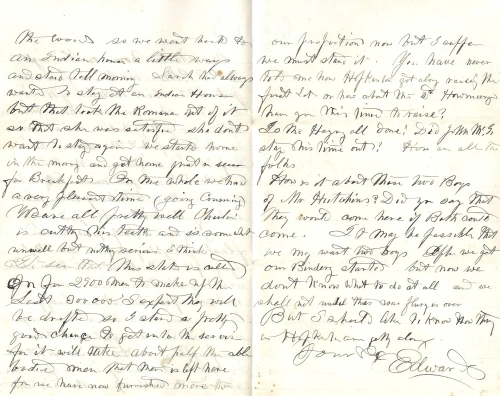 the woods so we went back to
an Indian house a little ways
and staid till morning Sarah had always
wanted to stay at an Indian House
but that took the Romance out of it
so that she was satisfied she dont
want to stay again we started home
in the morning and got home just in season
for Breakfast On the whole we had
a very pleasant time (going Cousining)
We are all pretty well Charlie
is cutting his teeth and is somewhat
unwell but nothing serious I think
I see that this state is called
on for 2500 men to make up the
last 300 000 I expect they will
be drafted so I stand a pretty
good chance to get into the service
for it will take about half the able
bodied men that there is left here
for we have now furnished more than
our proportion now but I suppose
we must stand it. You have never
told me how Hopkinton got along raising the
first lot or how about the 2nd How many
have you this time to raise?
Is the Haying all done? Did John
stay his time out? How are all the
folks
How is it about those two Boys
of Mr Hutchins? Did you say that
they wont come here if Both could
come. It may be possible that
we may want two boys if we get
our Bindery started but now we
dont know what to do at all and we
shall not under this war flurry is over
But I should like to know how they
in Hopkinton getting along
Yours &c
Edward